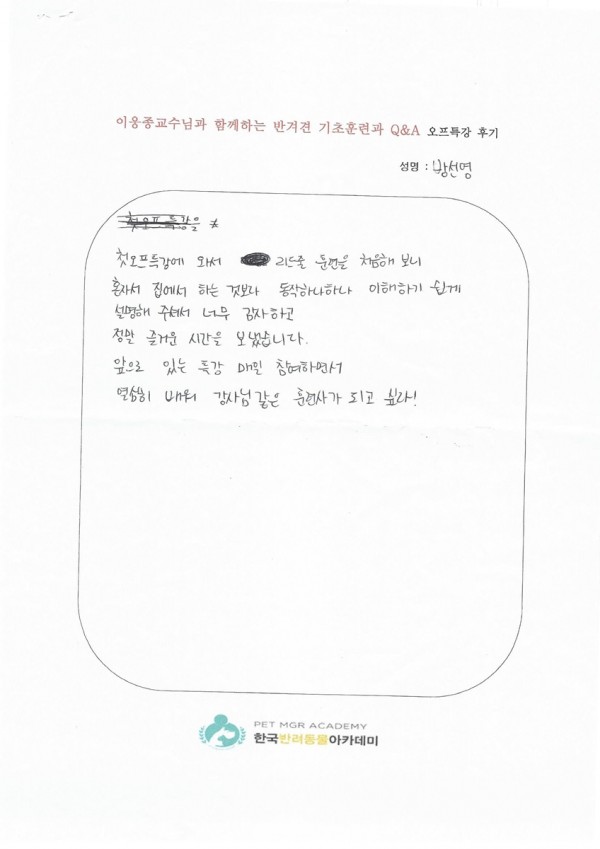 이웅종교수님과 함께하는 반겨견 기초훈련과 Q&A 오프특강 후기
성명 : 방선영
첫오프특강을
첫오프특강에 와서 리드줄 훈련을 처음해 보니
혼자서 집에서 하는 것보다 동작하나하나 이해하기 쉽게
설명해 주셔서 너무 감사하고
정말 즐거운 시간을 보냈습니다.
앞으로 있는 특강 매일 참여하면서
열심히 배워 강사님같은 훈련사가 되고 싶다!
PET MGR ACADEMY
한국반려동물아카데미